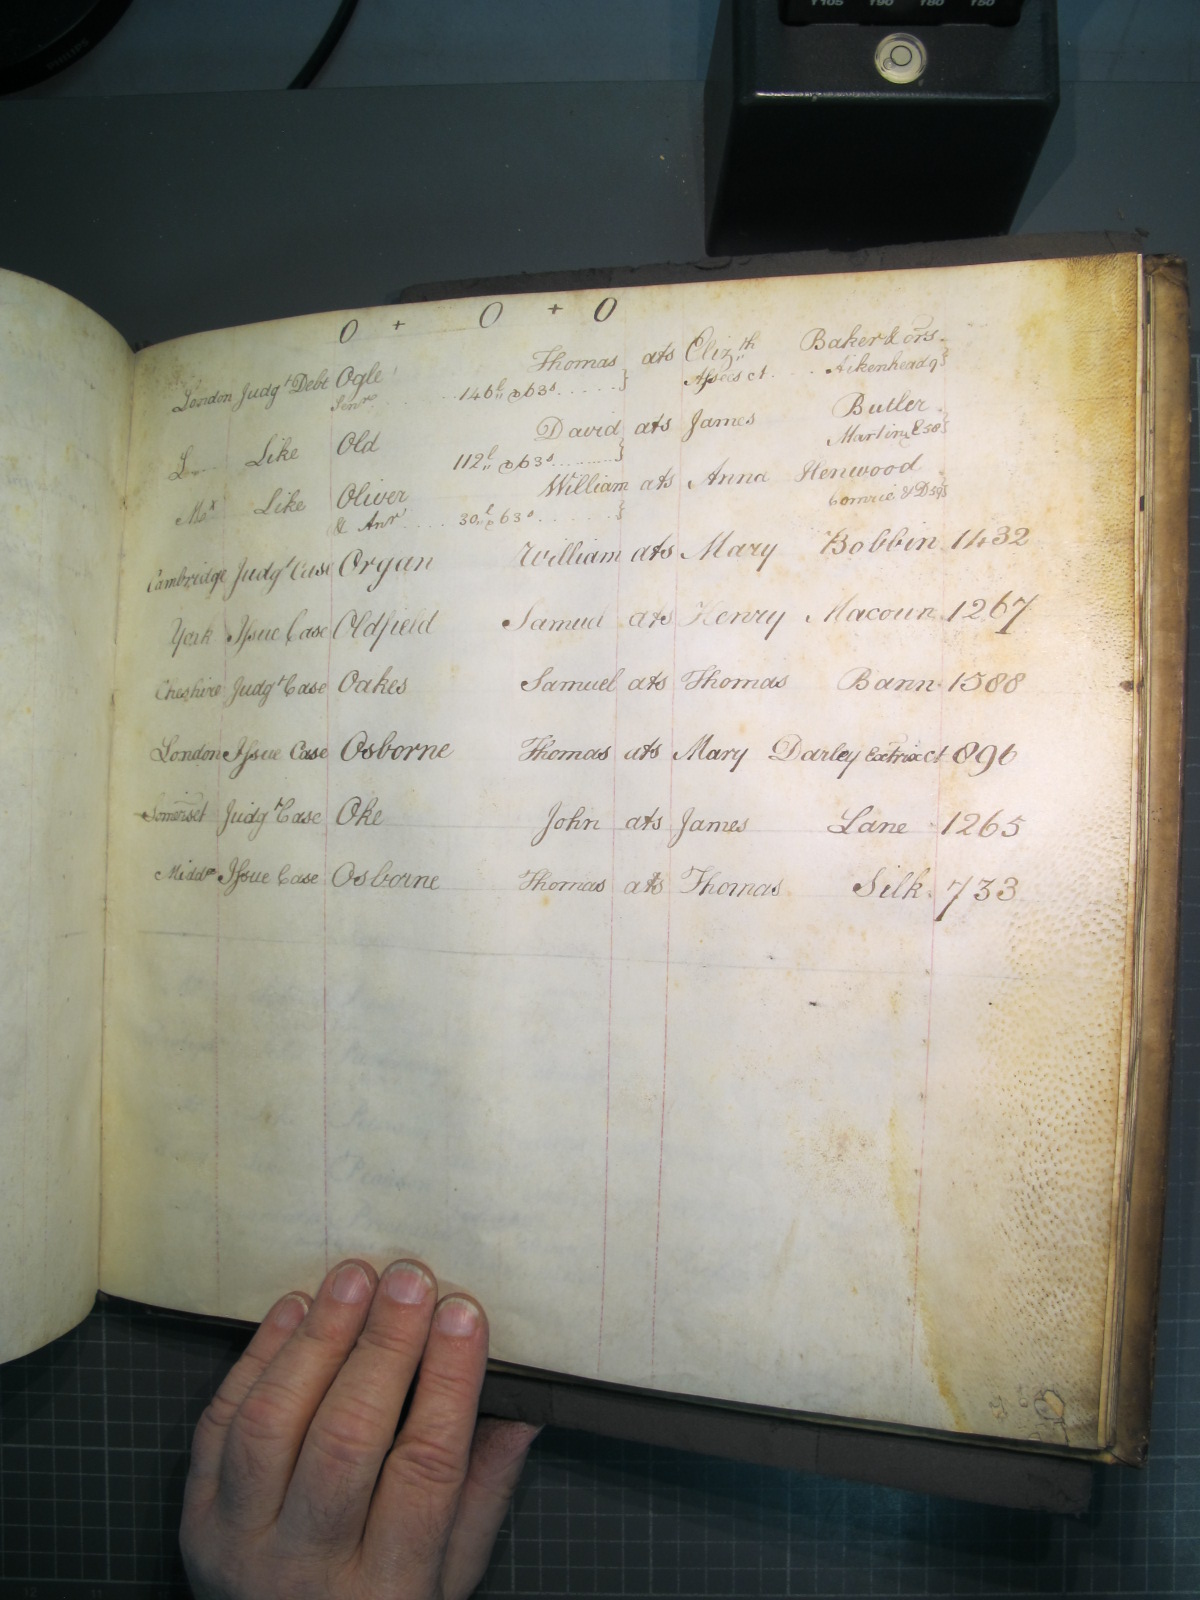 O + O + O
London Judgt Debt Ogle Thomas ats Elizth Baker & ors
Senr 146l.. & 63s Assees ct Aikenhead
L Like Old David ats James Butler
112l.. & 63s Martin
Mx Like Oliver William ats Anna Henwood
& Anr 30l.. & 63s
Cambridge Judgt Case Organ William ats Mary Bobbin 1432
York Issue Case Oldfield Samuel ats Henry Macoun 1267
Cheshire Judgt Case Oakes Samuel ats Thomas Bann 1588
London Issue Case Osborne Thomas ats Mary Darley Extrix ct 896
Somerset Judgt Case Oke John ats James Lane 1265
Middx Issue Case Osborne Thomas ats Thomas Silk 733